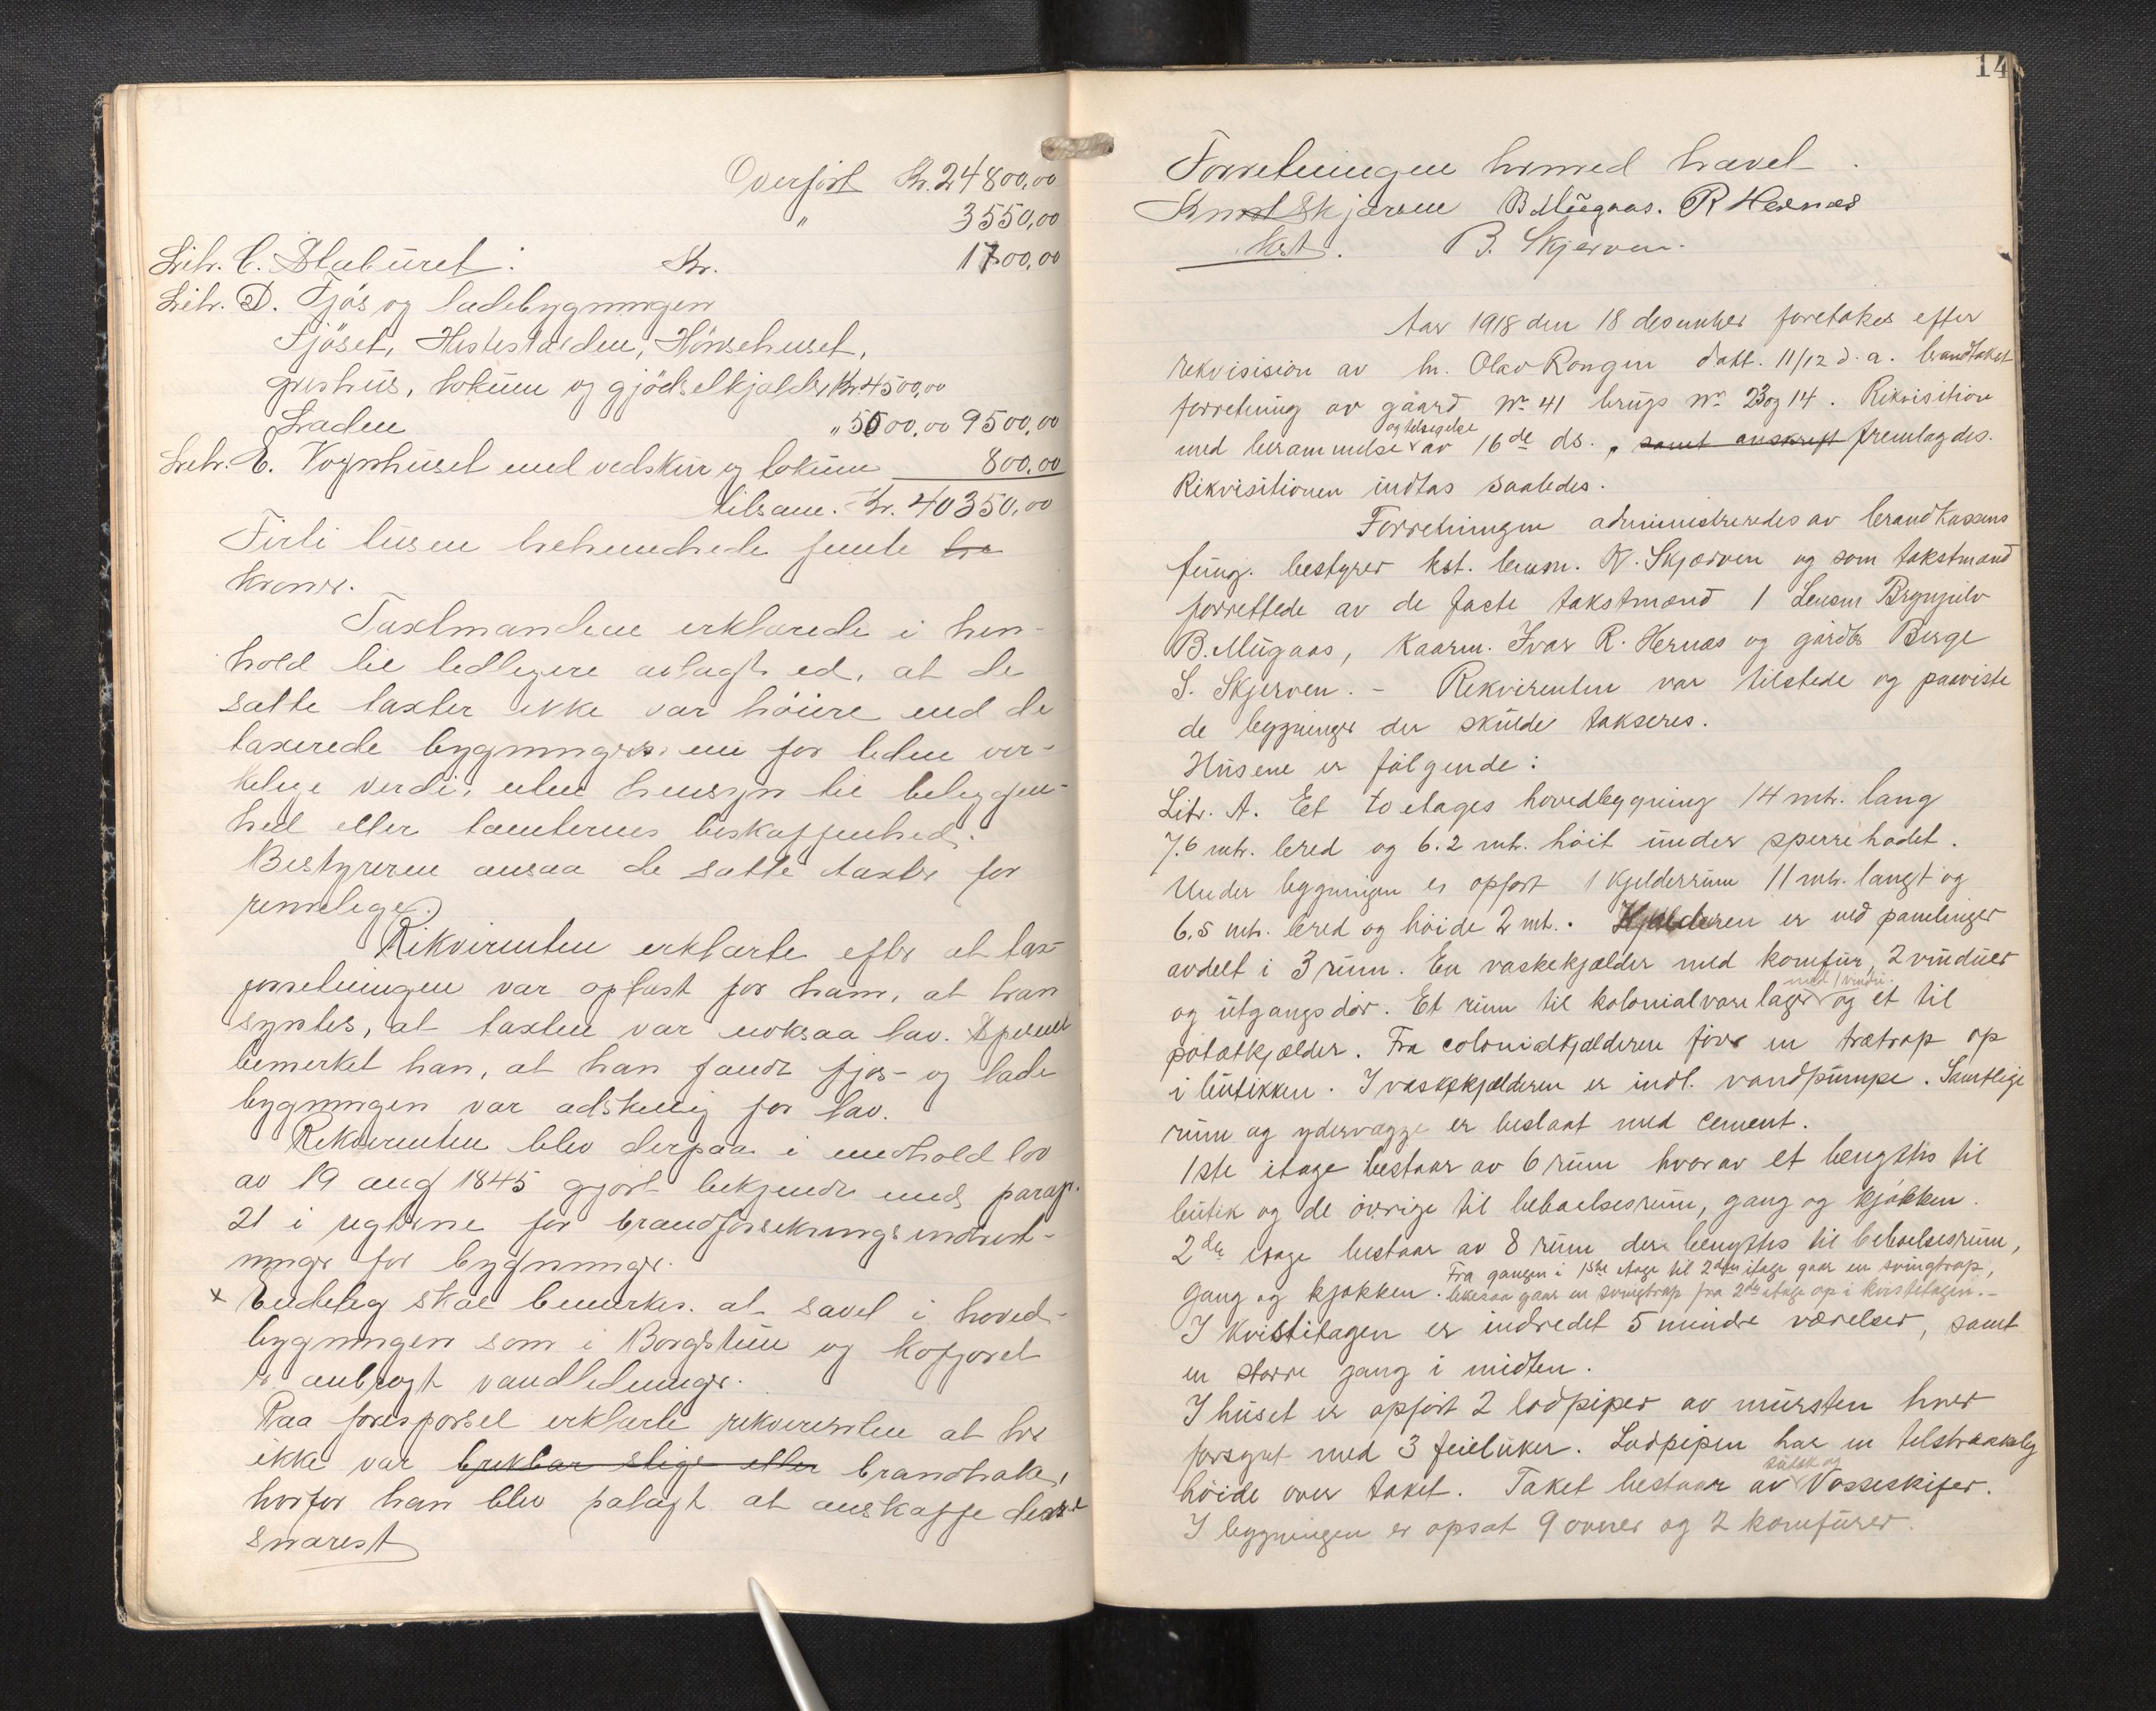 Overført Kr. 24800,00
" 3550,00
Litr. C. Stabüret. Kr. 1700,00
Litr. D. Fjøs og ladebygningen
Fjöset, Hestestalden, Hönsehuset,
grishüs, loküm og gjödselkjelder Kr. 4500,00
Laden " 5000,00 9500,00
Litr. E. Vognhüset med vedskür og loküm 800,00
tilsam. Kr. 40350,00
Firti tüsen trehundrede femti
kroner.
Taxtmændene erklærede i hen-
hold til tidligere avlagt ed, at de
satte taxter ikke var höiere end de
taxerede bygningers nu for tiden vir-
kelige verdi, uten hensyn til beliggen-
hed eller tomternes beskaffenhed.
Bestyreren ansaa de satte taxter for
rimelige.
Rikvirenten erklærte efter at tax-
forretningen var oplæst for ham, at han
syntes, at taxten var noksaa lav. Specielt
bemerket han, at han fandt fjøs- og lade
bygningen var adskillig for lav.
Rekvirenten blev derpaa i medhold lov
av 19 aug 1845 gjort bekjendt med parag.
21 i reglerne for brandforsikringsindret-
ninger for bygninger.
x Endelig skal bemerkes at savel i hoved-
bygningen som i Borgstüen og
er anbragt vandledninger.
Paa foresporsel erklærte rekvirenten at der
ikke var brukbar stige eller brandhake,
hvorfor han blev palagt at anskaffe disse
snarest
14
Forretningen hermed hævet.
Knut Skjærven B. Mügaas. R Hernes
kst. B. Skjerven.
Aar 1918 den 18 desember foretokes efter
rekvisision av hr. Olav Rongen datt. 11/12 d. a. brandtakst
forretning av gaard No 41 brügs No 23 og 14. Rikvisition
og tilsigelse
med berammelse av 16de ds., samt anskrift fremlagdes.
Rikvisitionen indtas saaledes.
Forretningen administreredes av brandkassens
füng. bestyrer kst. lensm. K. Skjærven og som takstmænd
forrettede av de faste takstmænd 1 Lensm Brynjulv
B. Mügaas, Kaarm. Ivar R. Hernæs og gårdbr Berge
S. Skjerven. – Rekvirenten var tilstede og paaviste
de bygninger der skülde takseres.
Hüsene er følgende:
Litr. A. Et to etages hovedbygning 14 mtr. lang
7.6 mtr. bred og 6.2 mtr. höit ünder sperrehodet.
Under bygningen er opført 1 kjelderrüm 11 mtr. langt og
6,5 mtr. bred og höide 2 mt. Kjælderen er ved panelinger
avdelt i 3 rüm. En vaskekjælder med komfür, 2 vindüer
med 1 vindu
og ütgangsdör. Et rüm til kolonialvarelager og et til
potætkjælder. Fra colonialkjælderen fører en trætrap op
i bütikken. I vaskekjælderen er indl. vandpümpe. Samtlige
rüm og ydervægge er beslaat med cement.
1ste etage bestaar av 6 rüm hvorav et benyttes til
bütik og de övrige til beboelsesrüm, gang og kjøkken.
2den etage bestaar av 8 rüm der benyttes til beboelsesrüm,
Fra gangen i 1ste etage til 2den etage gaar en svingtrap,
gang og kjøkken. likesaa gaar en svingtrap fra 2den etage op i kvistetagen. –
I Kvistetagen er indredet 5 mindre værelser, samt
en større gang i midten.
I hüset er opført 2 lodpiper av mürsten hver
forsynt med 3 feielüker. Lodpipen har en tilstrækkelig
höide over taket. Taket bestaar av Vosseskifer.
I bygningen er opsat 9 ovner og 2 komfürer.